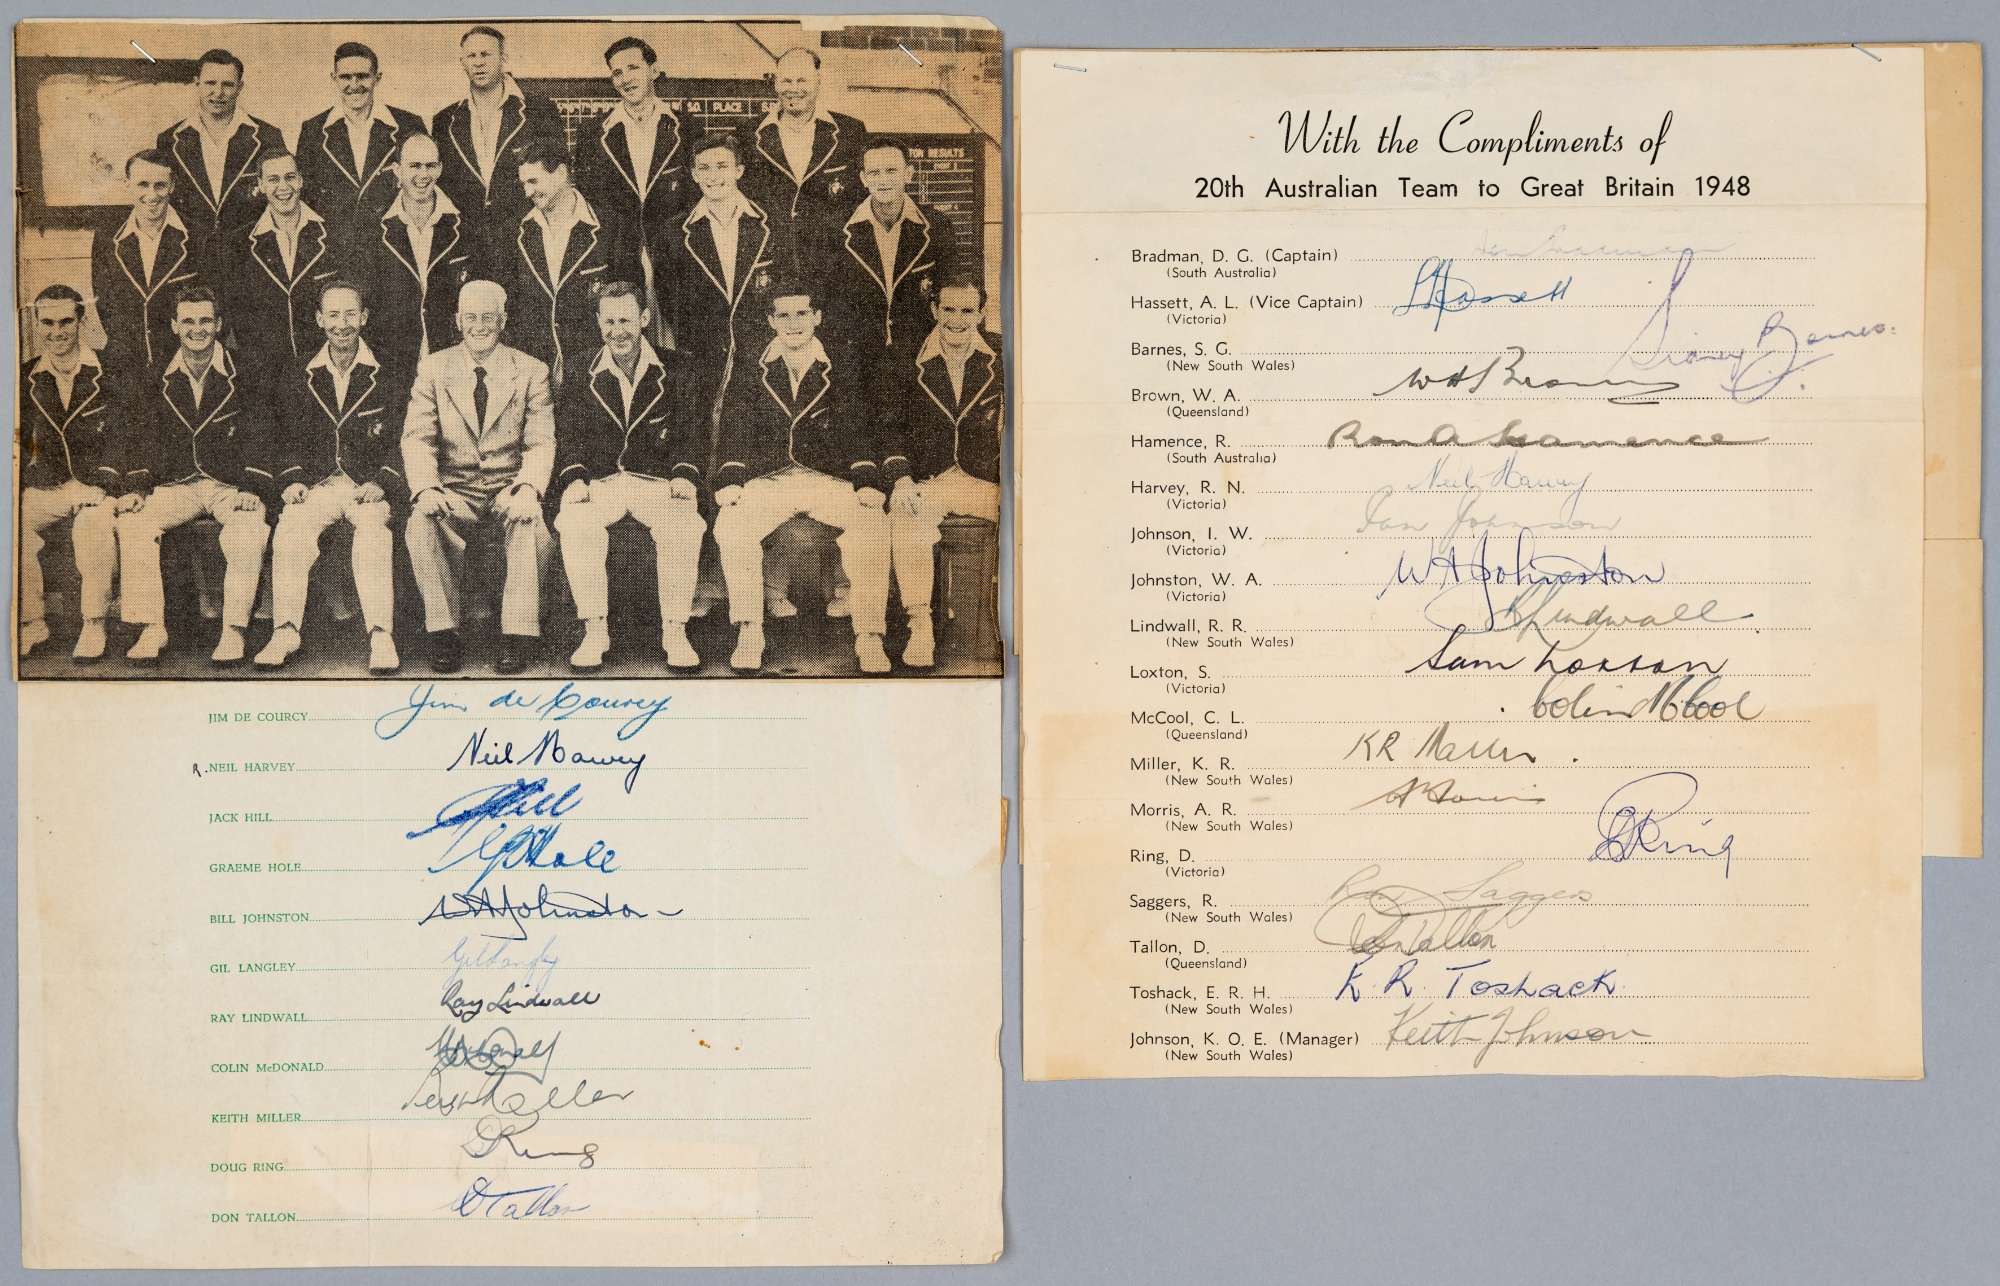 S.O. PLACE
RESULTS
JIM DE COURCY Jim de Courcy
R. NEIL HARVEY Neil Harvey
JACK HILL JHill
GRAEME HOLE GBHole
BILL JOHNSTON WAJohnston
GIL LANGLEY Gil Langley
RAY LINDWALL Ray Lindwall
COLIN McDONALD
KEITH MILLER Keith Miller
DOUG RING DRing
DON TALLON D Tallon
With the Compliments of
20th Australian Team to Great Britain 1948
Bradman, D. G. (Captain) Don Bradman
(South Australia)
Hassett, A. L. (Vice Captain) ALHassett
(Victoria)
Barnes, S. G. Sidney Barnes
(New South Wales)
Brown, W. A. WABrown
(Queensland)
Hamence, R. Ron A Hamence
(South Australia)
Harvey, R. N. Neil Harvey
(Victoria)
Johnson, I. W. Ian Johnson
(Victoria)
Johnston, W. A. WAJohnston
(Victoria)
Lindwall, R. R. RRLindwall
(New South Wales)
Loxton, S. Sam Loxton
(Victoria)
McCool, C. L. Colin McCool
(Queensland)
Miller, K. R. KR Miller
(New South Wales)
Morris, A. R. A Morris
(New South Wales)
Ring, D. DRing
(Victoria)
Saggers, R. Ron Saggers
(New South Wales)
Tallon, D. Don Tallon
(Queensland)
Toshack, E. R. H. E. R. Toshack
(New South Wales)
Johnson, K. O. E. (Manager) Keith Johnson
(New South Wales)